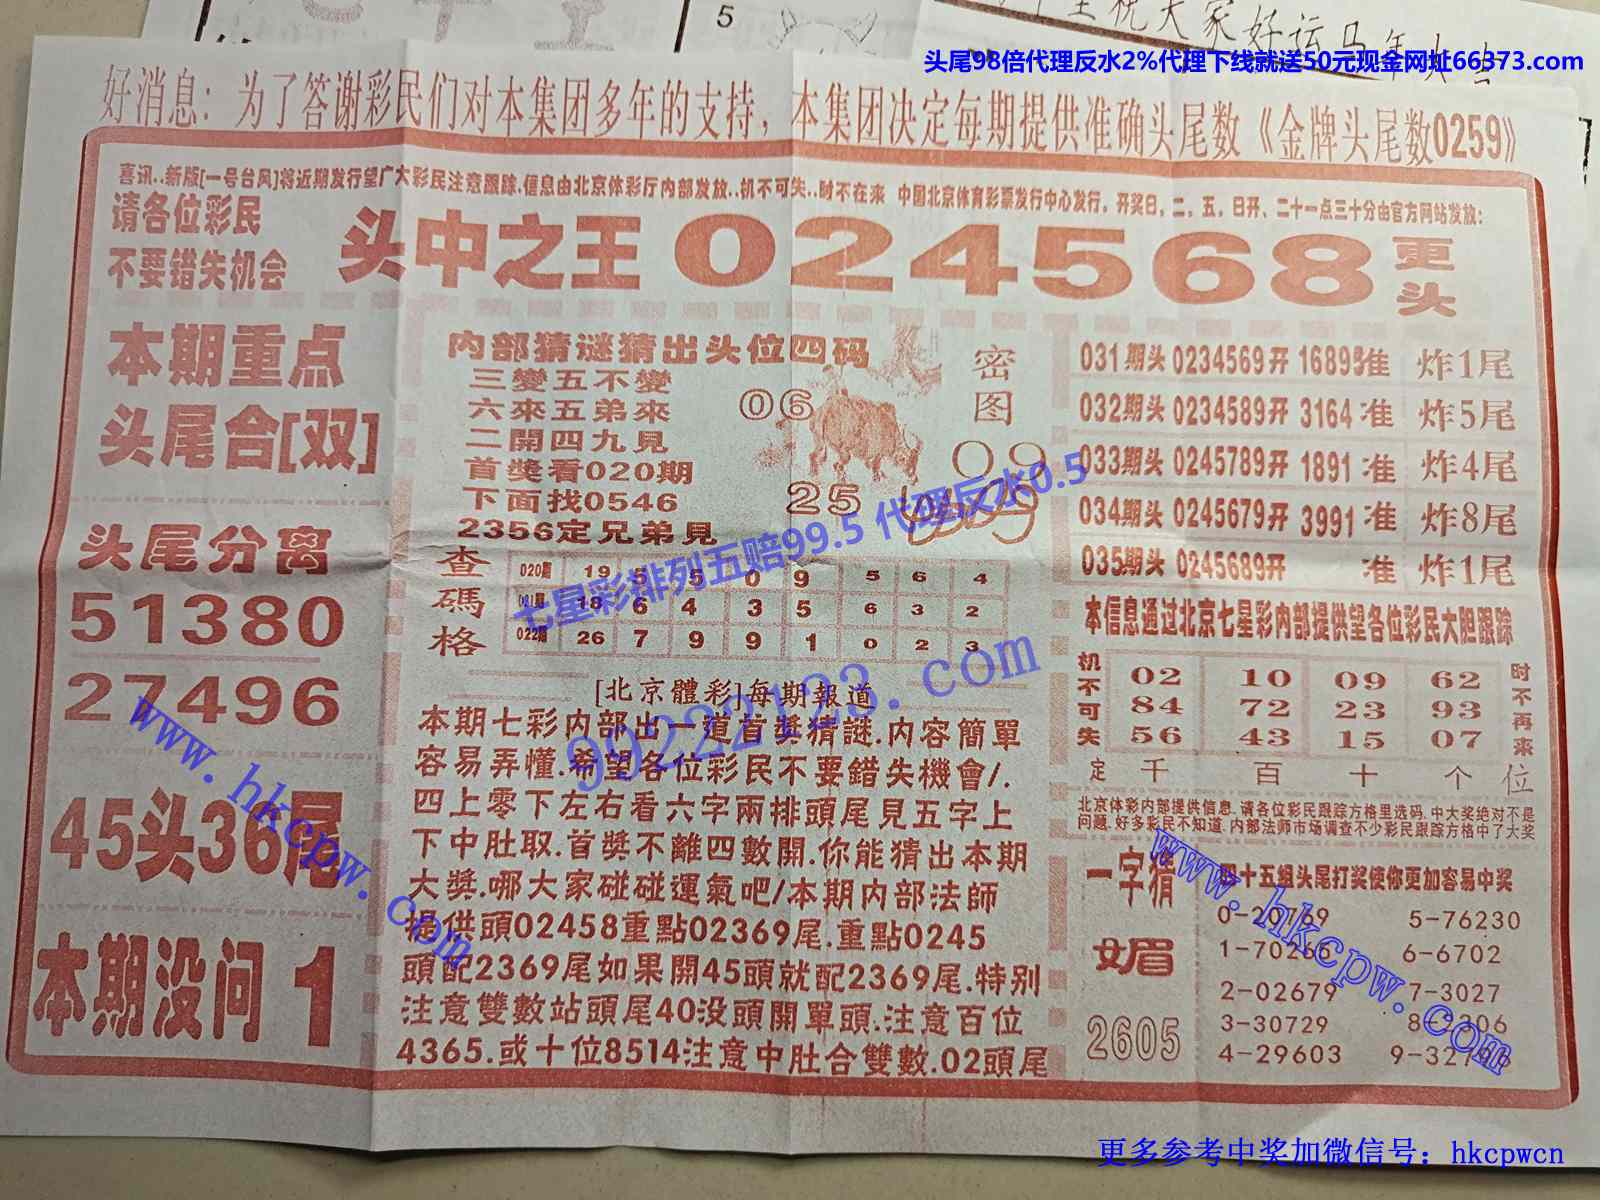 头尾98倍代理反水2%代理下线就送50元现金网址66373.com
5
好消息：为了答谢彩民们对本集团多年的支持，本集团决定每期提供准确头尾数《金牌头尾数0259》
喜讯..新版[一号台风]将近期发行望广大彩民注意跟踪.信息由北京体彩厅内部发放..机不可失..时不在来 中国北京体育彩票发行中心发行，开奖日，二，五，日开、二十一点三十分由官方网站发放：
请各位彩民
不要错失机会
头中之王024568
更头
本期重点
头尾合[双]
头尾分离
51380
27496
45头36尾
本期没问1
内部猜谜猜出头位四码
三變五不變
六來五弟來
二開四九見
首獎看020期
下面找0546
2356定兄弟見
06
25
09
密图
查碼格
020期 19 5 5 0 9 5 6 4
18 6 4 3 5 6 3 2
022期 26 7 9 9 1 0 2 3
[北京體彩]每期報道
本期七彩内部出一道首獎猜謎.内容簡單
容易弄懂.希望各位彩民不要錯失機會/.
四上零下左右看六字兩排頭尾見五字上
下中肚取.首獎不離四數開.你能猜出本期
大獎.哪大家碰碰運氣吧/本期内部法師
提供頭02458重點02369尾.重點0245
頭配2369尾如果開45頭就配2369尾.特别
注意雙數站頭尾40没頭開單頭.注意百位
4365.或十位8514注意中肚合雙數.02頭尾
031期头0234569开 16895准 炸1尾
032期头0234589开 3164准 炸5尾
033期头 0245789开 1891 准 炸4尾
034期头 0245679开 3991 准 炸8尾
035期头 0245689开 准 炸1尾
本信息通过北京七星彩内部提供望各位彩民大胆跟踪
机不可失
02 10 09 62
84 72 23 93
56 43 15 07
时不再来
定 千 百 十 个 位
北京体彩内部提供信息.请各位彩民跟踪方格里选码.中大奖绝对不是
问题.好多彩民不知道.内部法师市场调查不少彩民跟踪方格中了大奖
一字猜
媚
2605
四十五组头尾打奖使你更加容易中奖
0-20169 5-76230
1-70265 6-6702
2-02679 7-3027
3-30729
4-29603
七星彩排列五赔99.5 代理反水0.5
90222123.com
www.hkcpw.com
www.hkcpw.com
更多参考中奖加微信号：hkcpwcn